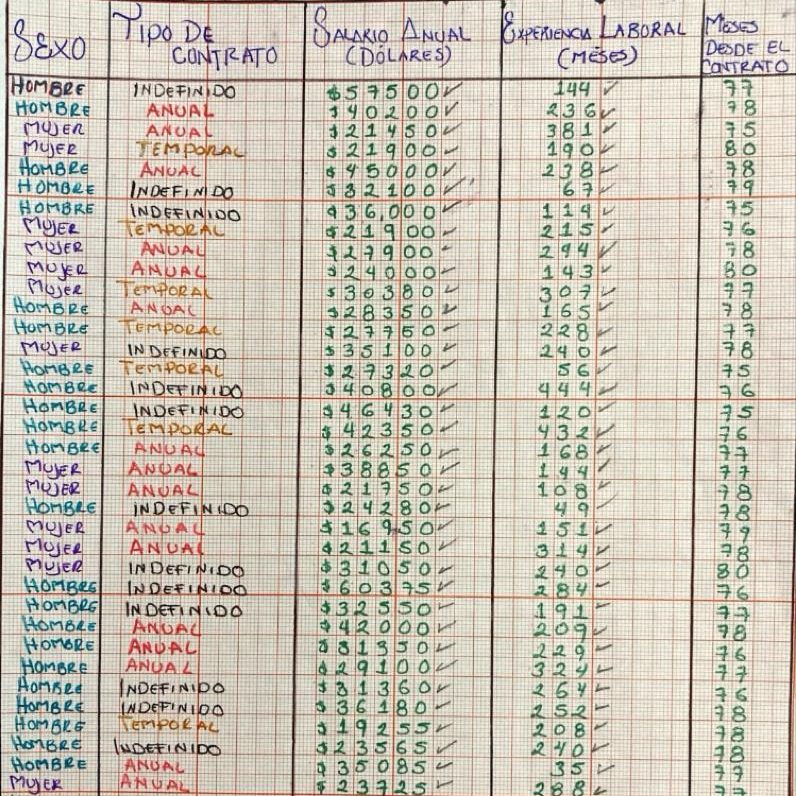 SEXO TIPO DE CONTRATO SALARIO ANUAL (DÓLARES) EXPERIENCIA LABORAL (MESES) MESES DESDE EL CONTRATO
HOMBRE INDEFINIDO $57500 144 77
HOMBRE ANUAL $40200 236 78
MUJER ANUAL $21450 381 75
MUJER TEMPORAL $21900 190 80
HOMBRE ANUAL $45000 238 78
HOMBRE INDEFINIDO $32100 67 79
HOMBRE INDEFINIDO $36,000 114 75
MUJER TEMPORAL $21900 215 76
MUJER ANUAL $27900 294 78
MUJER ANUAL $24000 143 80
MUJER TEMPORAL $30380 307 77
HOMBRE ANUAL $28350 165 78
HOMBRE TEMPORAL $27750 228 77
MUJER INDEFINIDO $35100 240 78
HOMBRE TEMPORAL $27320 56 75
HOMBRE INDEFINIDO $40800 444 76
HOMBRE INDEFINIDO $46430 120 75
HOMBRE TEMPORAL $42350 432 76
HOMBRE ANUAL $26250 168 77
MUJER ANUAL $38850 144 77
MUJER ANUAL $21750 108 78
HOMBRE INDEFINIDO $24280 49 78
MUJER ANUAL $16950 151 79
MUJER ANUAL $21150 314 78
MUJER INDEFINIDO $31050 240 80
HOMBRE INDEFINIDO $60375 284 76
HOMBRE INDEFINIDO $32550 191 77
HOMBRE ANUAL $42000 209 78
HOMBRE ANUAL $31350 229 76
HOMBRE ANUAL $29100 324 77
HOMBRE INDEFINIDO $31360 264 76
HOMBRE INDEFINIDO $36180 252 78
HOMBRE TEMPORAL $19255 208 78
HOMBRE INDEFINIDO $23565 240 78
HOMBRE ANUAL $35085 35 77
MUJER ANUAL $23725 288 77